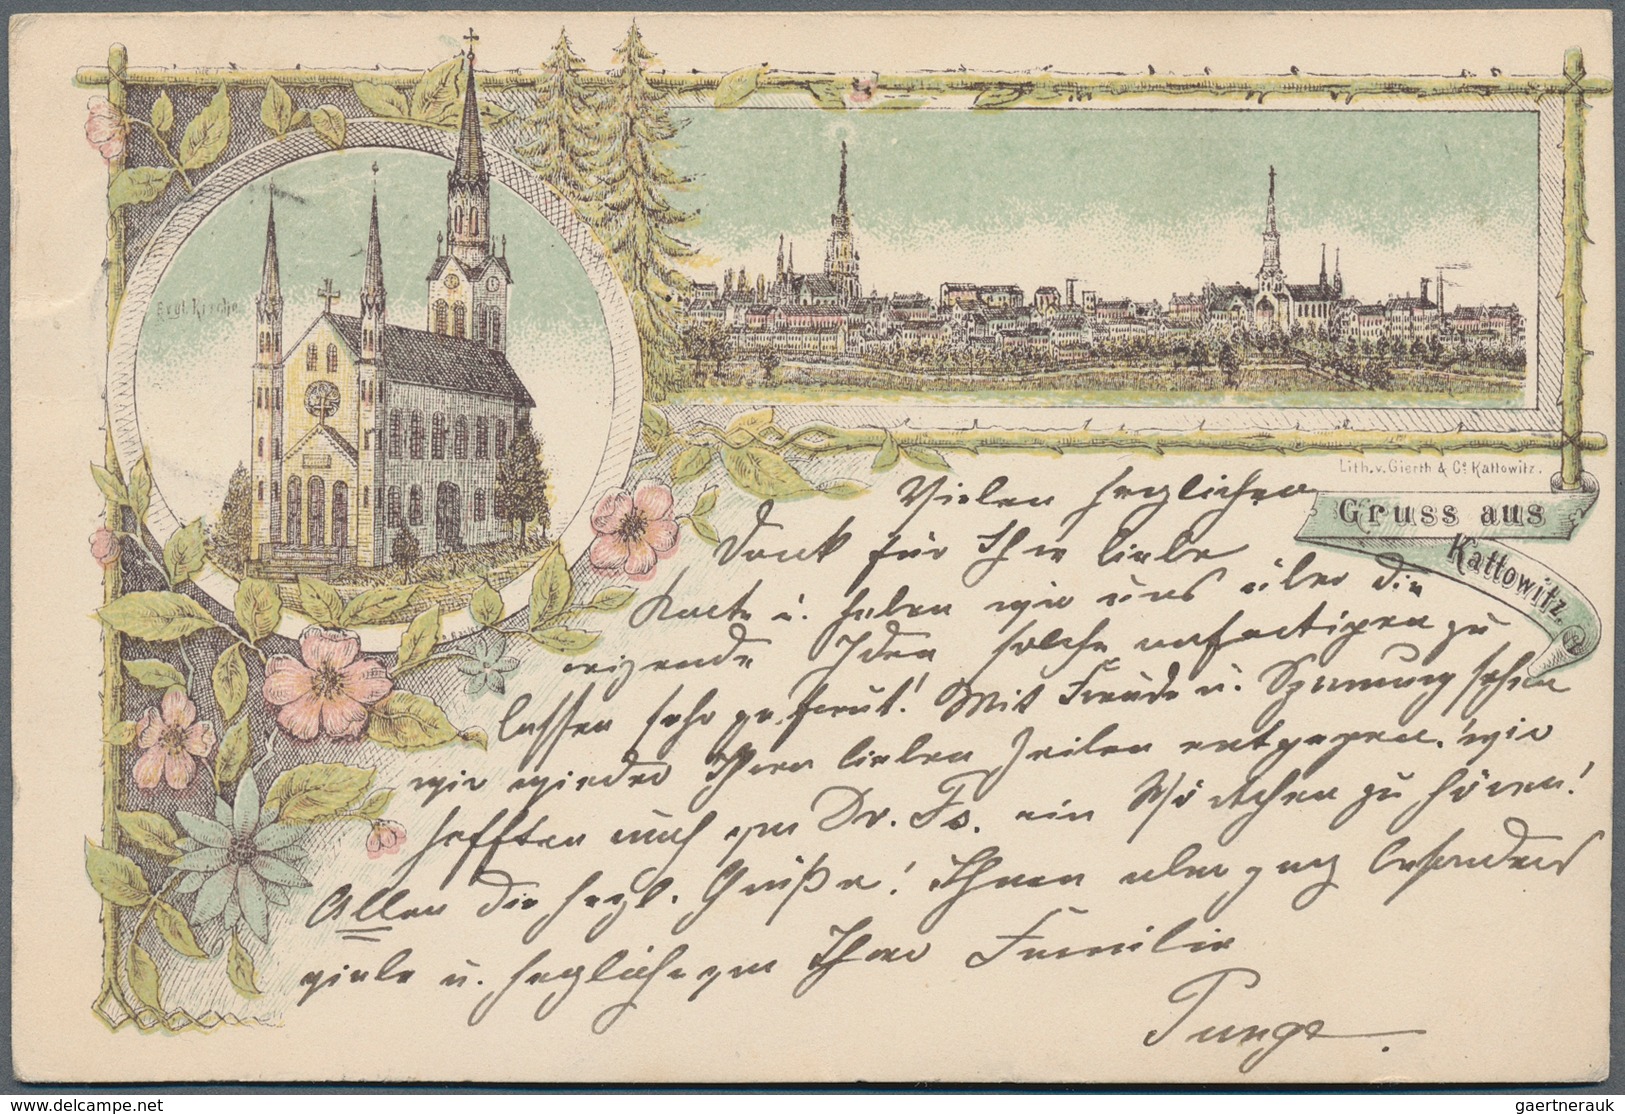 Evgl. Kirche
Lith. v. Gierth & Co Kattowitz.
Gruss aus
Kattowitz.
Vielen herzlichen
Dank für Ihre liebe
Karte u. haben wir uns über die
reizende Idee solche anfertigen zu
lassen sehr gefreut! Mit Freude u. Spannung sehen
wir wieder Ihren lieben Zeilen entgegen. wir
hofften auch von Dr. Fs. ein Wörtchen zu hören!
Allen die herzl. Grüße! Ihnen aber ganz besonders
viele u. herzliche von Ihrer Familie
delcampe.net
gaertnerauk